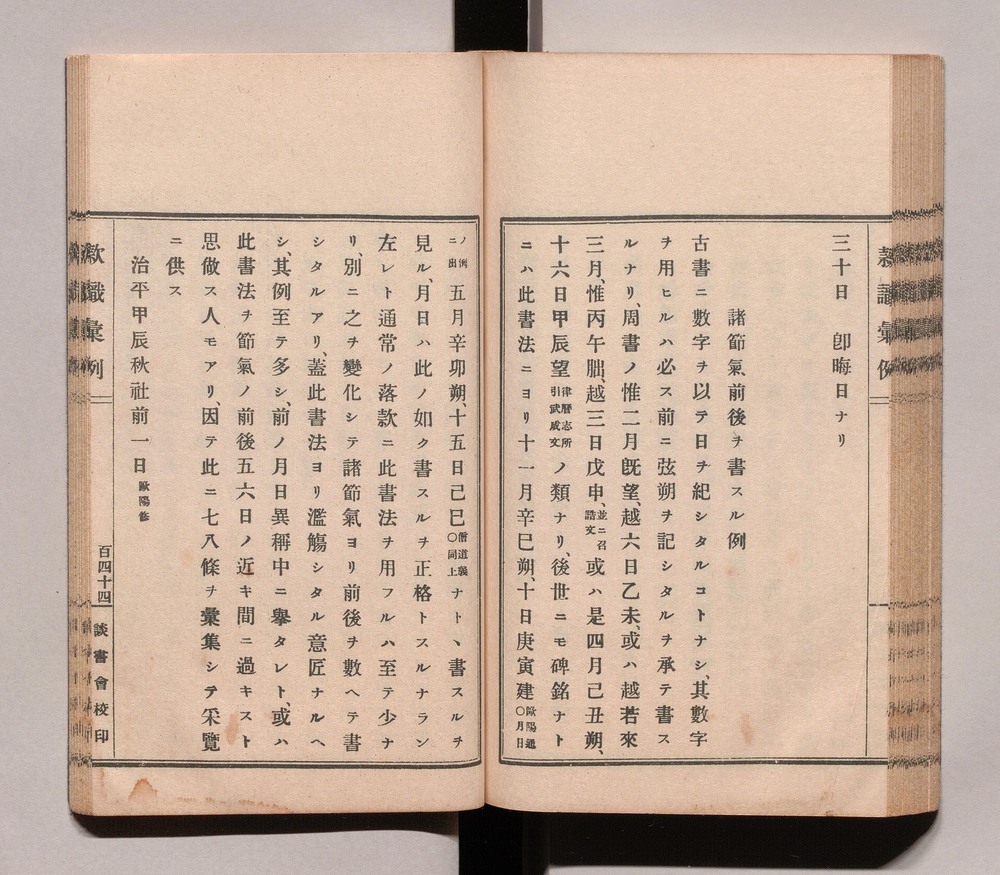 三十日　卽晦日ナリ
諸節氣前後ヲ書スル例
古書ニ數字ヲ以テ日ヲ紀シタルコトナシ、其數字
ヲ用ヒルハ必ス前ニ弦朔ヲ記シタルヲ承テ書ス
ルナリ、周書ノ惟二月既望、越六日乙未、或ハ越若來
三月、惟丙午朏、越三日戊申、並ニ召誥文或ハ是四月己丑朔、
十六日甲辰望律曆志所引武成文ノ類ナリ、後世ニモ碑銘ナト
ニハ此書法ニヨリ十一月辛巳朔、十日庚寅建歐陽通〇月日
ノ例ニ出五月辛卯朔、十五日己巳僧道義〇同上ナト丶書スルヲ
見ル、月日ハ此ノ如ク書スルヲ正格トスルナラン
左レト通常ノ落款ニ此書法ヲ用フルハ至テ少ナ
リ、別ニ之ヲ變化シテ諸節氣ヨリ前後ヲ數ヘテ書
シタルアリ、蓋此書法ヨリ濫觴シタル意匠ナルヘ
シ、其例至テ多シ、前ノ月日異稱中ニ擧タレト、或ハ
此書法ヲ節氣ノ前後五六日ノ近キ間ニ過キスト
思做ス人モアリ、因テ此ニ七八條ヲ彙集シテ采覽
ニ供ス
治平甲辰秋社前一日歐陽修
欵識彙例
百四十四
談書會校印